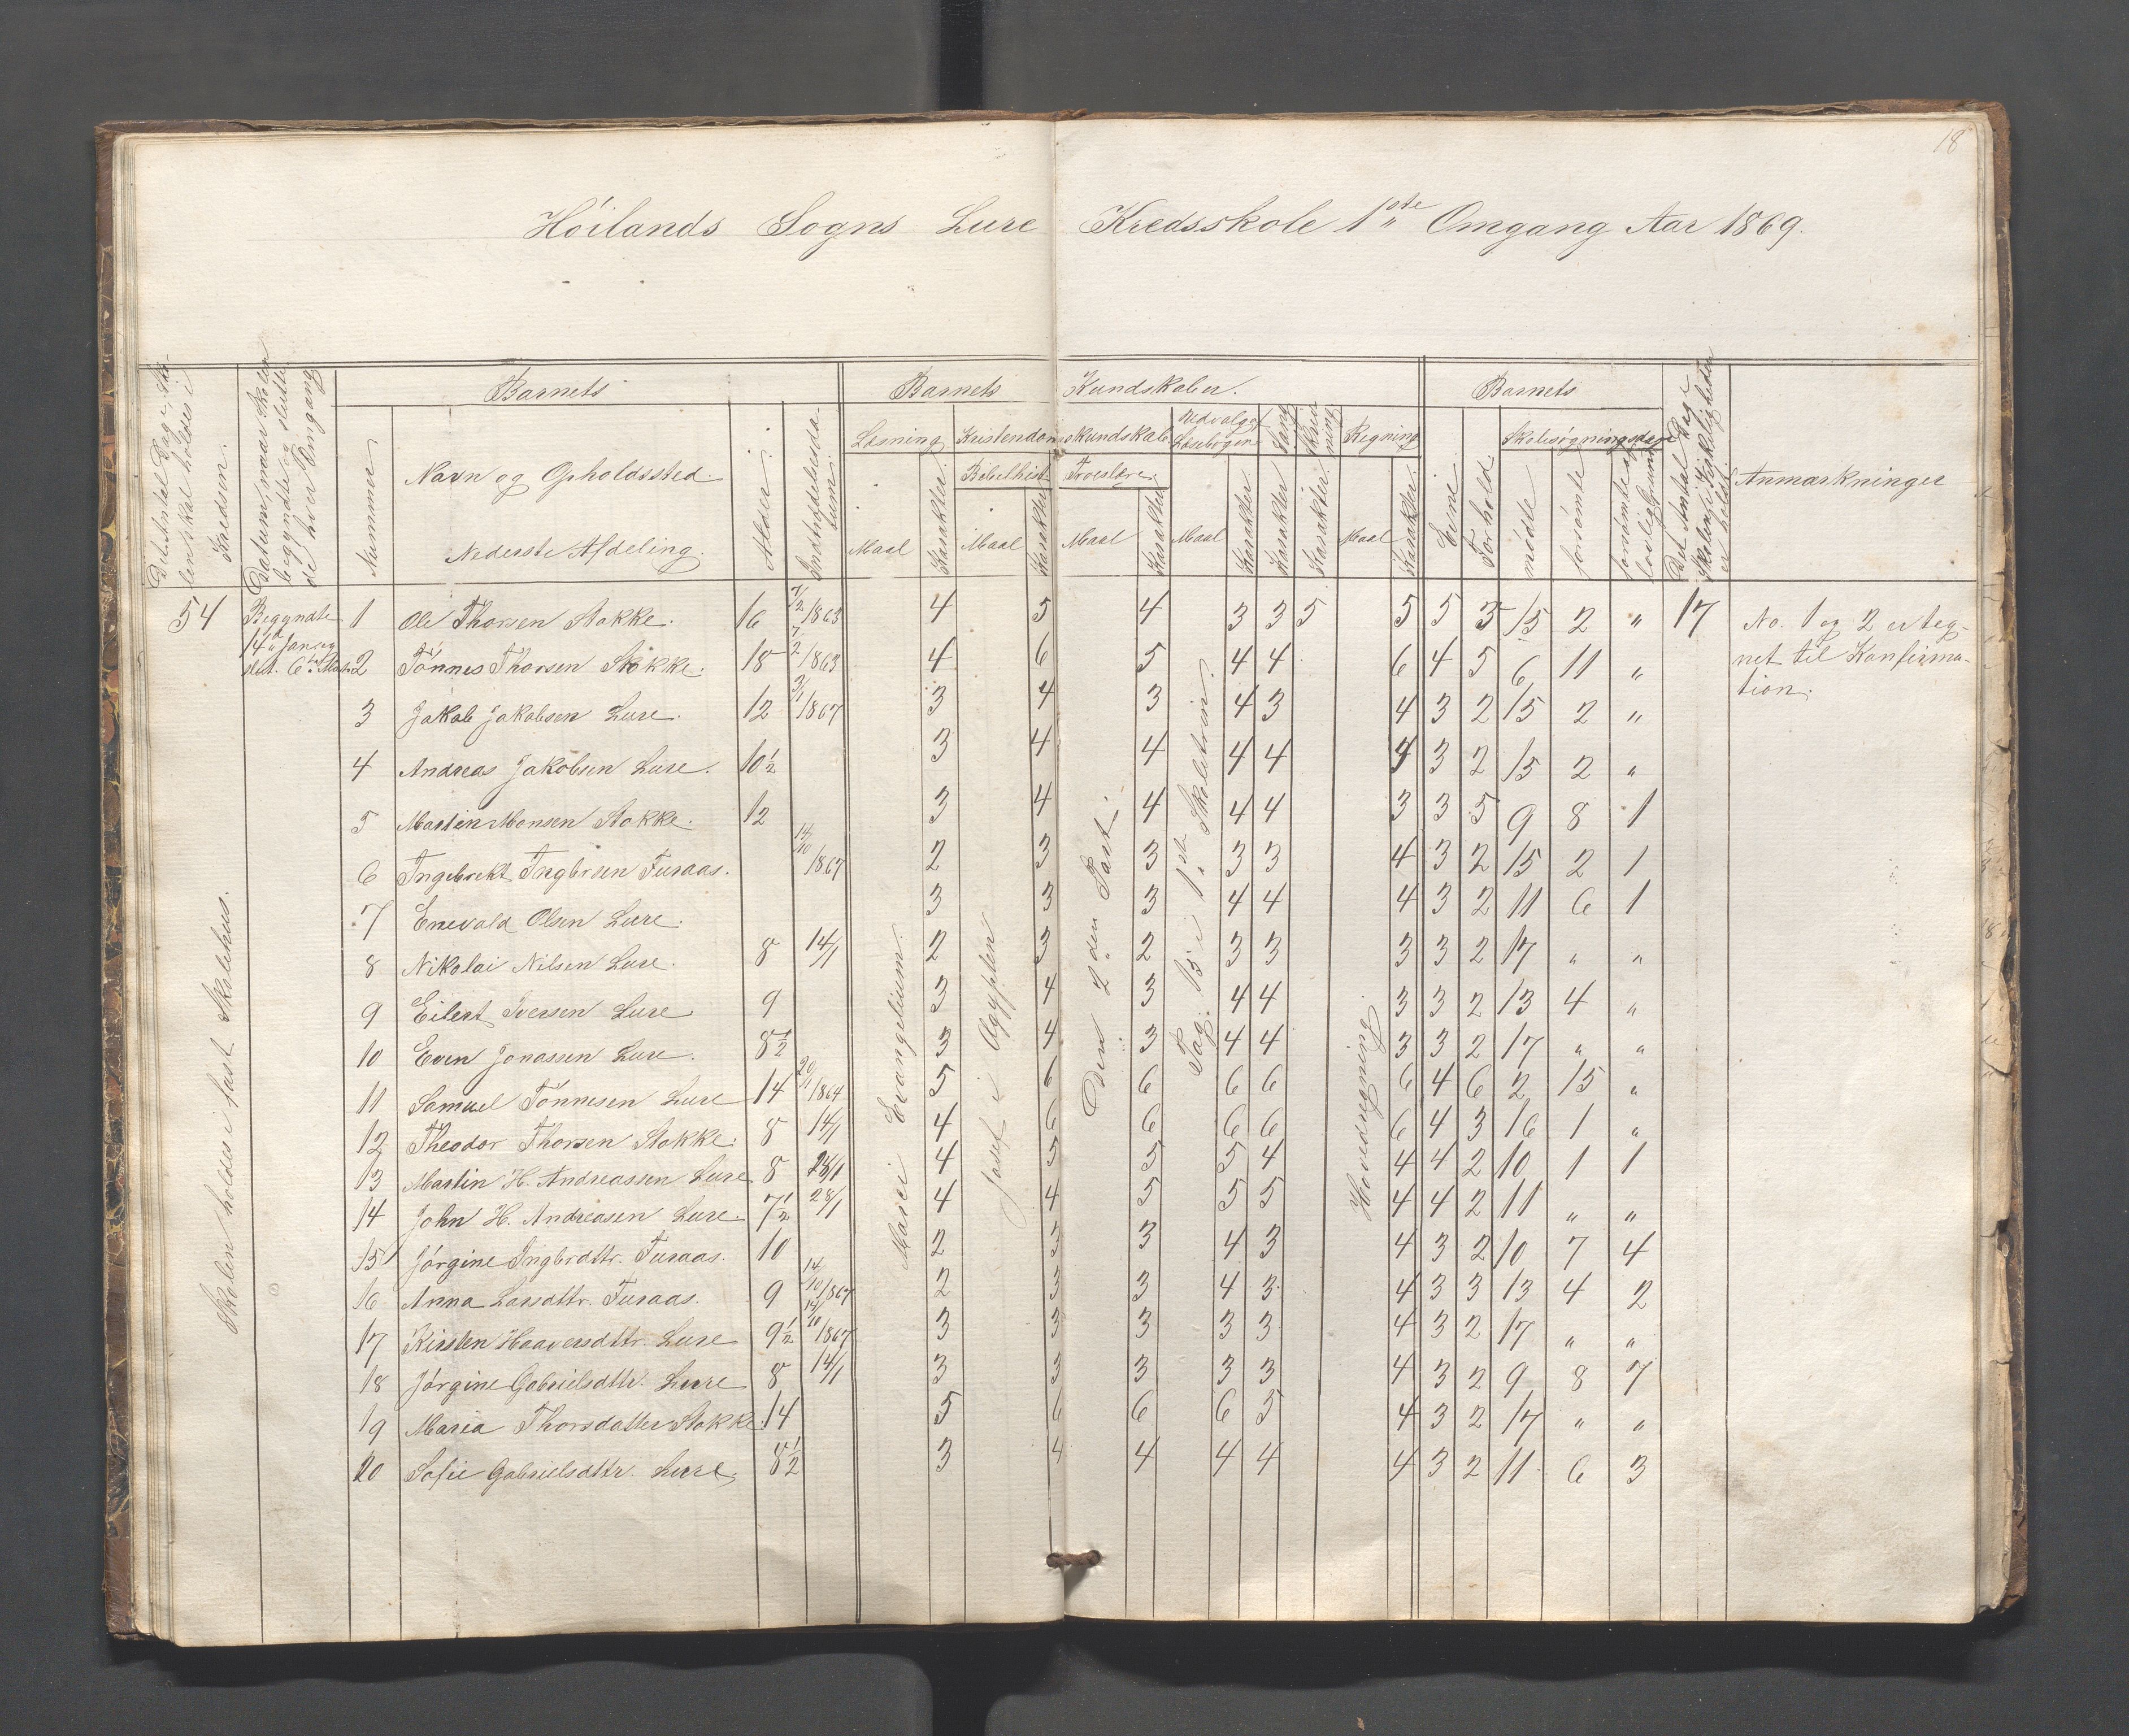 18
Höilands Sogns Lure Kredsskole 1ste Omgang Aar 1869.
Det Antal Dage, Sko-
len skal holdes i
Kredsen.
Datum, naar Skolen
begyndte og slutte-
de hver Omgang
Barnets
Nummer
Navn og Opholdssted.
Nederste Afdeling.
Alder.
Indtrædelsesda-
tum.
Barnets Kundskaber.
Læsning
Maal
Karakter.
Kristendomskundskab
Bibelhist.
Maal
Karakter
Troeslære.
Maal
Karakter
Udvalget
Læsebogen
Maal
Karakter
Sang
Karakter
Skriv
ning
Karakter.
Regning
Maal
Karakter.
Barnets
Evne
Forhold
Skolesøgningsdage
mödte
forsömte
forsömte af
lovlig grund
Det Antal Dage
Skolen i Virkeligheden
er holdt
Anmærkninger
54 Begyndte 1 Ole Thorsen Stokke. 16 7/2 1863 4 5 4 3 3 5 5 5 3 15 2 " 17 No. 1 og 2 er teg-
14de Jan. og
slut. 6te Mart. 2 Tönnes Thorsen Stokke. 18 7/2 1863 4 6 5 4 4 6 4 5 6 11 " net til Konfirma-
tion.
3 Jakob Jakobsen Lure. 12 3/1 1867 3 4 3 4 3 4 3 2 15 2 "
4 Andreas Jakobsen Lure. 10½ 3 4 4 4 4 4 3 2 15 2 "
5 Martin Monsen Stokke. 12 3 4 4 4 4 3 3 5 9 8 1
6 Ingebrekt Ingbrsen Furaas. 14/10 1867 2 3 3 3 3 4 3 2 15 2 1
7 Enevald Olsen Lure. 3 3 3 4 4 4 3 2 11 6 1
8 Nikolai Nilsen Lure. 8 14/1 2 3 2 3 3 3 3 2 17 " "
9 Eilert Iversen Lure 9 3 4 3 4 4 3 3 2 13 4 "
10 Even Jonassen Lure. 8½ 3 4 3 4 4 3 3 2 17 " "
11 Samuel Tönnesen Lure 14 20/11 1864 5 6 6 6 6 6 4 6 2 15 "
12 Theodor Thorsen Stokke. 8 14/1 4 6 6 6 6 6 4 3 16 1 "
13 Martin H. Andreassen Lure 8 28/1 4 5 5 5 4 4 4 2 10 1 1
14 John H. Andreasen Lure. 7½ 28/1 4 4 5 5 5 4 4 2 11 " "
15 Jörgine Ingbrdttr. Furaas. 10 2 3 3 4 3 4 3 2 10 7 4
16 Anna Larsdttr. Furaas. 9 14/10 1867 2 3 3 4 3 4 3 3 13 4 2
17 Kirsten Haaversdttr. Lure 9½ 14/10 1867 3 3 3 3 3 4 3 2 17 " "
18 Jörgine Gabrielsdttr. Lure 8 14/1 3 3 3 3 3 4 3 2 9 8 7
19 Maria Thorsdatter Stokke. 14 5 6 6 6 5 4 3 2 17 " "
20 Sofie Gabrielsdttr. Lure. 8½ 3 4 4 4 4 4 3 2 11 6 3
Skolen holdes i fast Skolehus.
Marci Evangelium.
Josef i Ægypten
Den 2den Part.
Pag. 13 i 1ste Skoletrin.
Hovedregning.